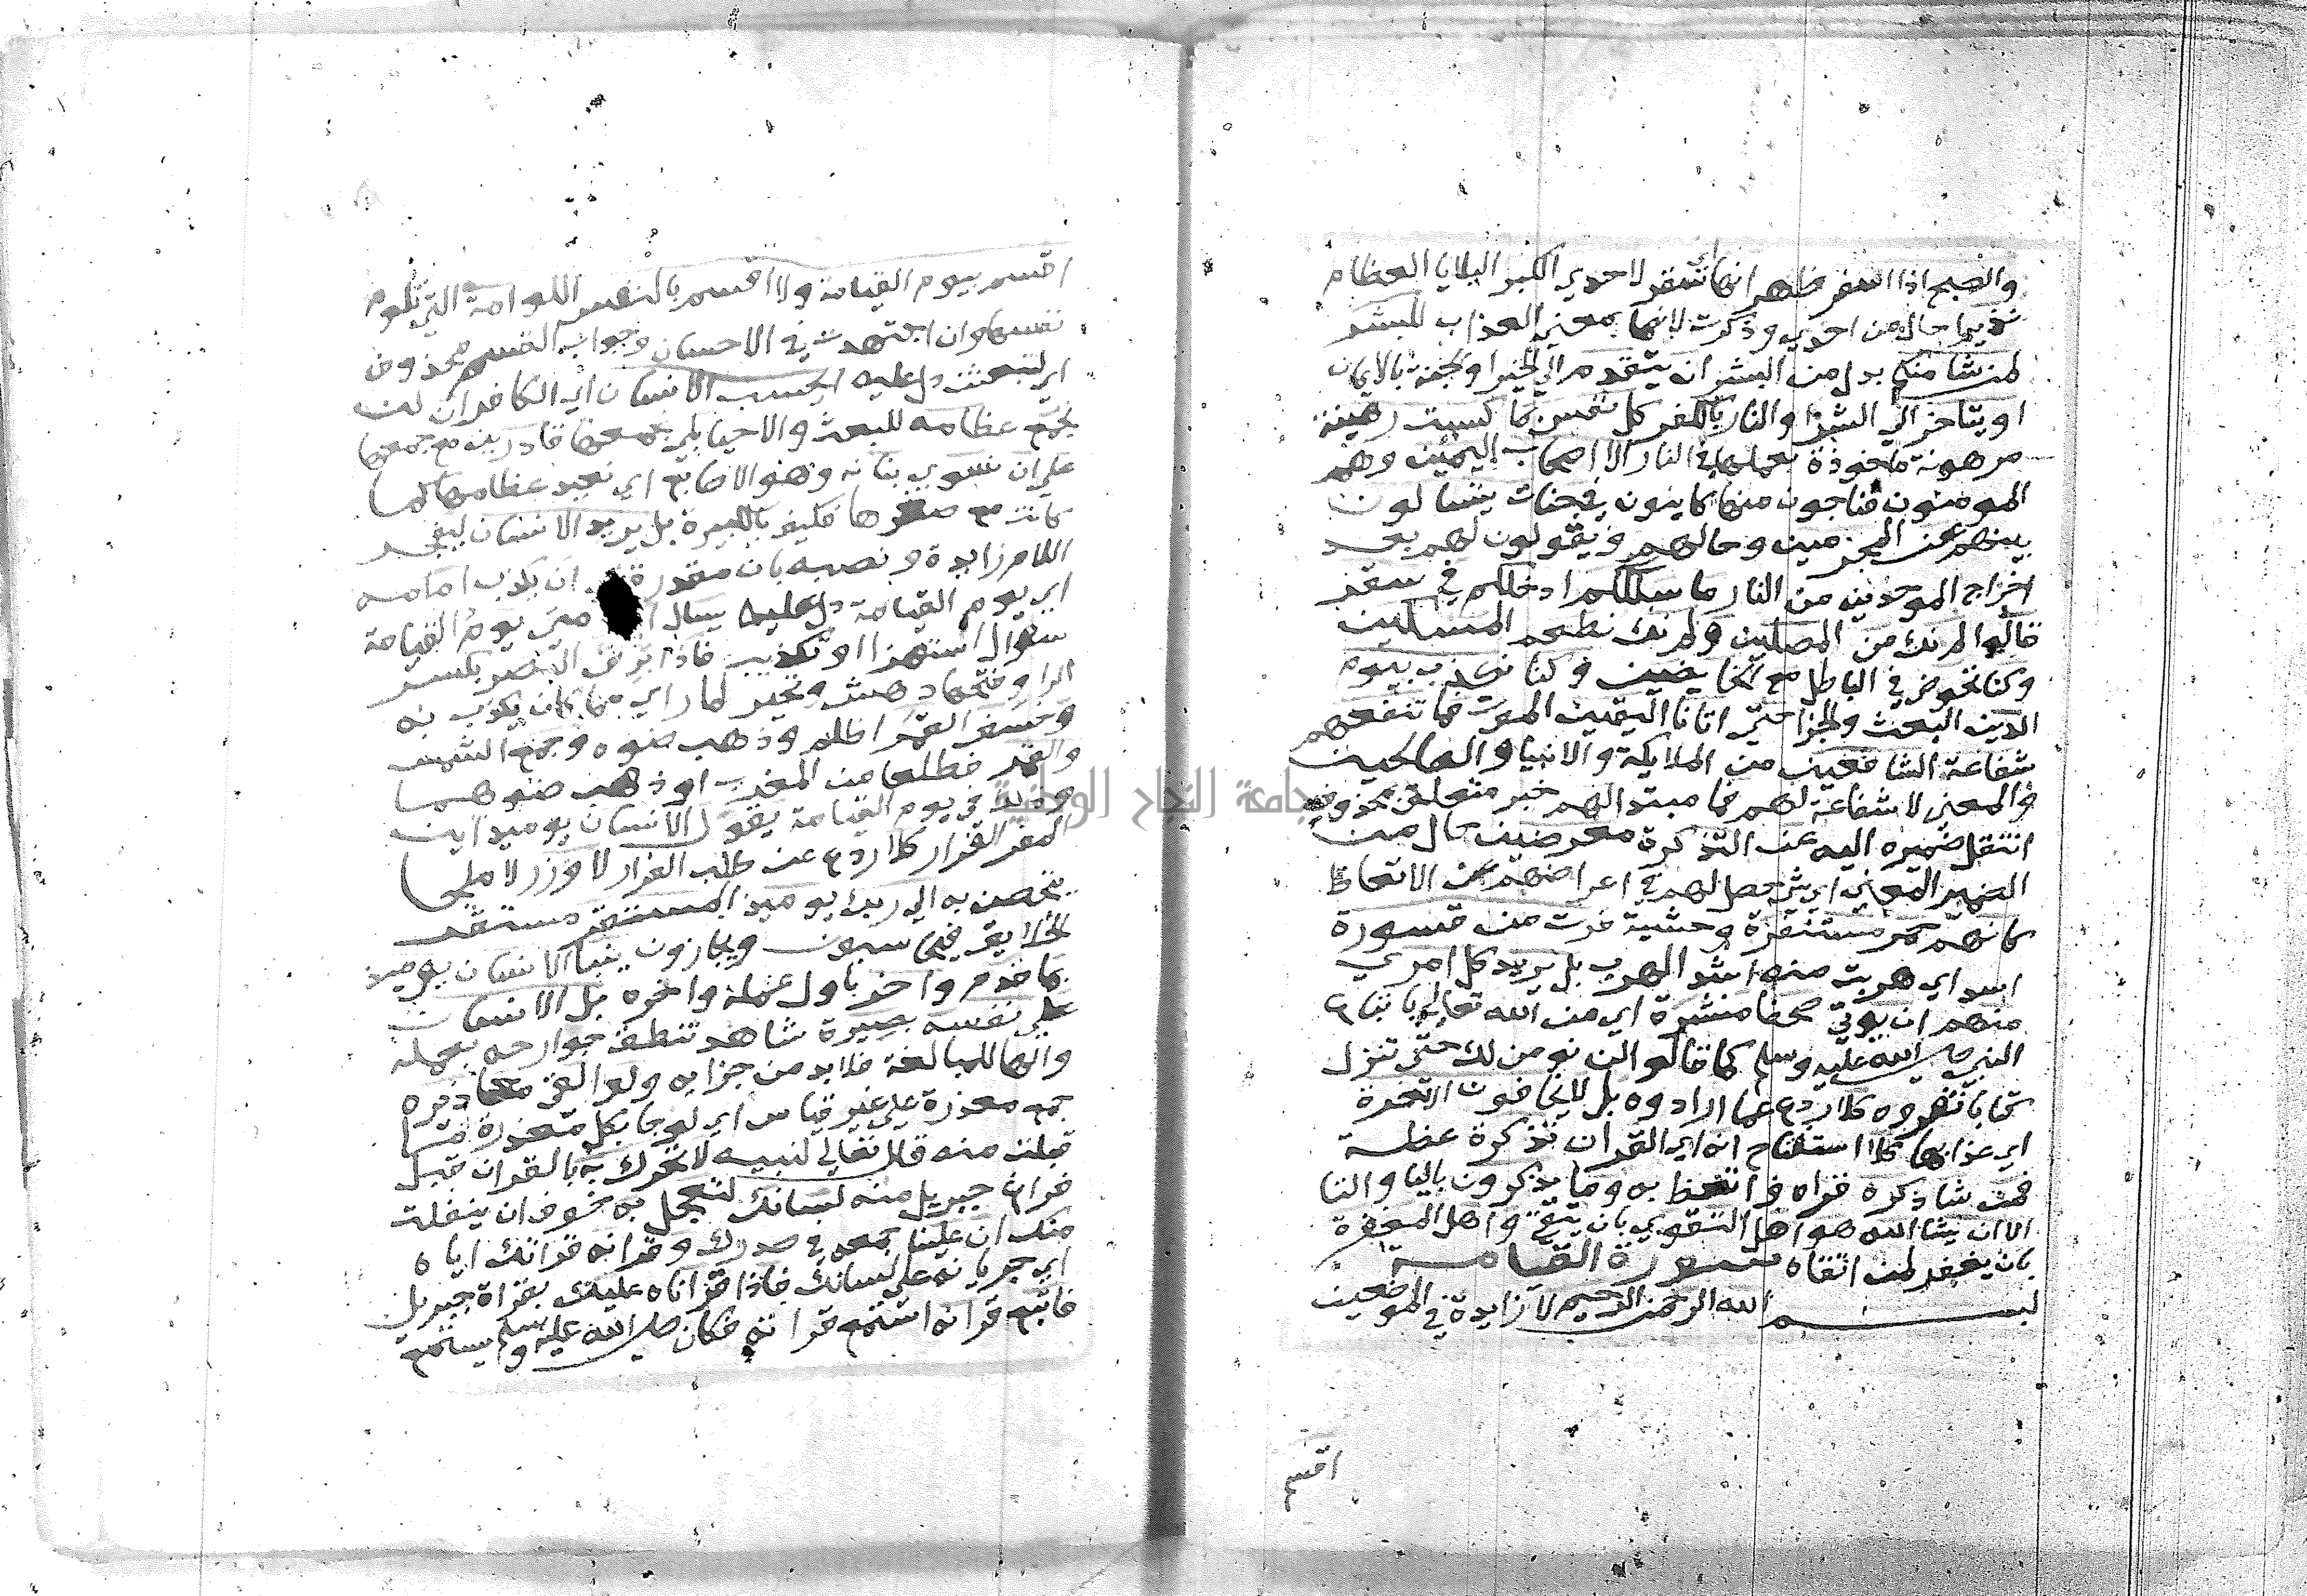 والصبح اذا اسفر ظهر انها اي سقر لاحدي الكبر البلايا العظام
نذيرا حال من احدي وذكرت لانها بمعني العذاب للبشر
لمن شا منكم بدل من البشر ان يتقدم الي الخير او الجنة بالايمان
او يتاخر الي الشر او النار بالكفر كل نفس بما كسبت رهينة
مرهونة ماخوذة بعملها في النار الا اصحاب اليمين وهم
المومنون فناجون منها كاينون في جنات يتسالون
بينهم عن المجرمين وحالهم ويقولون لهم بعد
اخراج الموحدين من النار ما سلككم ادخلكم في سقر
قالوا لم نك من المصلين ولم نك نطعم المسكين
وكنا نخوض في الباطل مع الخايضين وكنا نكذب بيوم
الدين البعث والجزا حتي اتانا اليقين الموت فما تنفعهم
شفاعة الشافعين من الملايكة والانبيا والصالحين
والمعني لا شفاعة لهم فما مبتدا لهم خبر متعلق بمحذوف
انتقل ضميره اليه عن التذكرة معرضين حال من
الضمير المعني اي شي حصل لهم في اعراضهم عن الاتعاظ
كانهم حمر مستنفرة وحشية فرت من قسورة
اسد اي هربت منه اشد الهرب بل يريد كل امري
منهم ان يوتي صحفا منشرة اي من الله تعالي باتباع
النبي صلي الله عليه وسلم كما قالوا لن نومن لك حتي تنزل
كتابا نقروه كلا ردع عما ارادوه بل لا يخافون الاخرة
اي عذابها كلا استفتاح انه اي القران تذكرة عظة
فمن شا ذكره قراه فاتعظ به وما يذكرون باليا والتا
الا ان يشا الله هو اهل التقوي بان يتقي واهل المغفرة
بان يغفر لمن اتقاه سورة القيامة
بسم الله الرحمن الرحيم لا زايدة في الموضعين
اقسم
اقسم بيوم القيامة ولا اقسم بالنفس اللوامة التي تلوم
نفسها وان اجتهدت في الاحسان وجواب القسم محذوف
اي لتبعثن دل عليه ايحسب الانسان اي الكافر ان لن
نجمع عظامه للبعث والاحيا بلي نجمعها قادرين مع جمعها
علي ان نسوي بنانه وهو الاصابع اي نعيد عظامها كما
كانت مع صغرها فكيف بالكبيرة بل يريد الانسان ليفجر
اللام زايدة ونصبه بان مقدرة ان يكذب امامه
اي يوم القيامة دل عليه يسال متي يوم القيامة
سوال استهزا او تكذيب فاذا برق البصر بكسر
الرا وفتحها دهش وتحير لما راي مما كان يكذب به
وخسف القمر اظلم وذهب ضوه وجمع الشمس
والقمر فطلعا من المغرب او ذهب ضوهما
وذلك في يوم القيامة يقول الانسان يوميذ اين
المفر الفرار كلا ردع عن طلب الفرار لا وزر لا ملجا
يتحصن به الي ربك يوميذ المستقر مستقر
الخلايق فيحاسبون ويجازون ينبا الانسان يوميذ
بما قدم واخر باول عمله واخره بل الانسان
علي نفسه بصيرة شاهد تنطق جوارحه بعمله
والها للمبالغة فلا بد من جزايه ولو القي معاذيره
جمع معذرة علي غير قياس اي لو جا بكل معذرة ما
قبلت منه قال تعالي لنبيه لا تحرك به بالقران قبل
فراغ جبريل منه لسانك لتعجل به خوف ان ينفلت
منك ان علينا جمعه في صدرك وقرانه قراتك اياه
اي جريانه علي لسانك فاذا قراناه عليك بقراة جبريل
فاتبع قرانه استمع قراته فكان صلي الله عليه وسلم يستمع
جامعة النجاح الوطنية